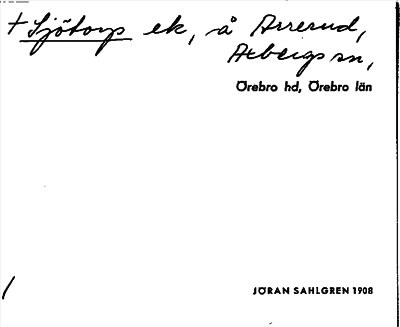 † Sjötorps ek, å Arrerud,
Axbergs sn,
Örebro hd, Örebro län
/
JÖRAN SAHLGREN 1908